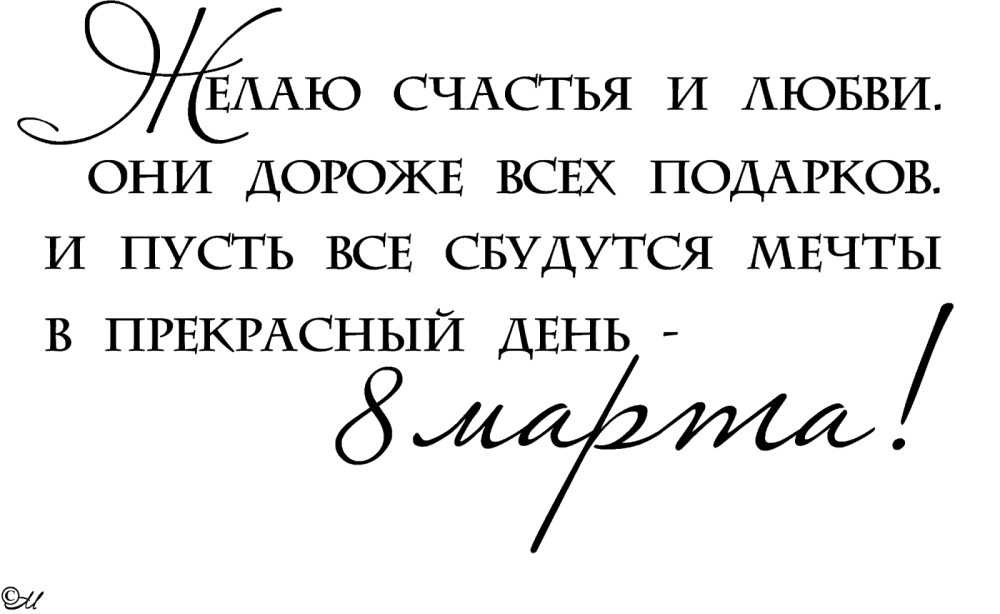 Желаю счастья и любви.
Они дороже всех подарков.
И пусть все сбудутся мечты
в прекрасный день -
8 марта!
©М